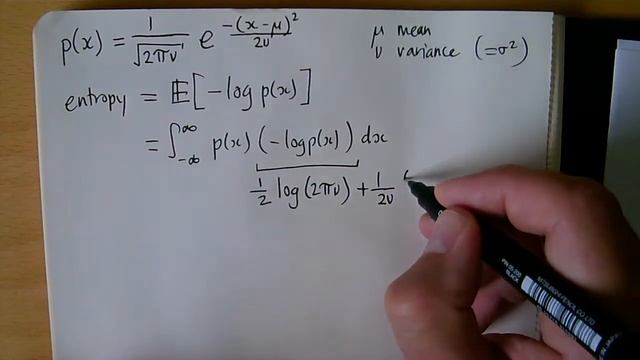 p(x) = 1/√(2πv) e^(-(x-μ)²/2v)
μ mean
v variance (=σ²)
entropy = 𝔼[-log p(x)]
= ∫_{-∞}^{∞} p(x) (-log p(x)) dx
1/2 log(2πv) + 1/2v (